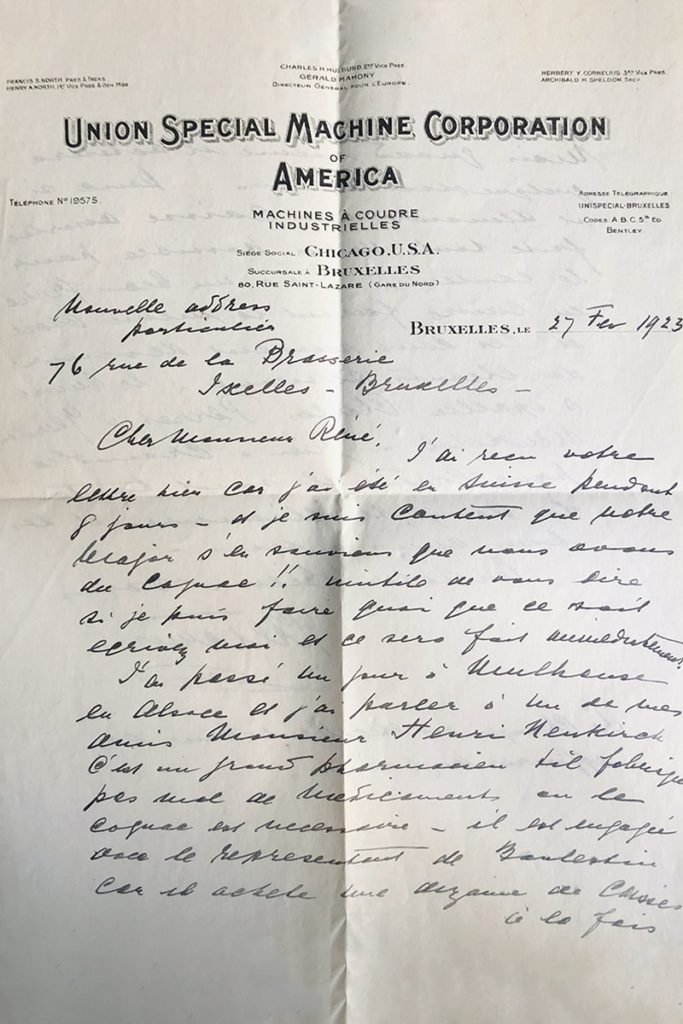 FRANCIS S. NORTH, PRES & TREAS
HENRY A. NORTH, 1ST VICE PRES & GEN MGR
CHARLES H. HULBURD, 2ND VICE PRES
GÉRALD MAHONY
DIRECTEUR GÉNÉRAL POUR L'EUROPE.
HERBERT Y. CORNELIUS 3RD VICE PRES.
ARCHIBALD H. SHELDON SECY
UNION SPECIAL MACHINE CORPORATION
OF
AMERICA
TÉLÉPHONE No 19575.
MACHINES À COUDRE
INDUSTRIELLES
ADRESSE TÉLÉGRAPHIQUE
UNISPECIAL-BRUXELLES
CODES A.B.C. 5TH ED
BENTLEY.
SIÈGE SOCIAL CHICAGO.U.S.A.
SUCCURSALE À BRUXELLES
80, RUE SAINT-LAZARE (GARE DU NORD)
Nouvelle address
particulier
BRUXELLES, LE 27 Fev 1923
76 rue de la Brasserie
Ixelles - Bruxelles -
Cher Monsieur Réné,
J'ai recu votre
lettre hier car j'ai été en Suisse pendant
8 jours - et je suis content que votre
Major s'en souviens que nous avons
du Cognac !! inutile de vous dire
si je puis faire quoi que ce soit
ecrivez moi et ce sera fait immediatement.
J'ai passé un jour à Mulhouse
en Alsace et j'ai parler à un de mes
amis Monsieur Henri Neukirch
C'est un grand pharmacien
pas mal de medicaments ou le
cognac est necessaire - il est engagée
avec le representant de
car il achete une dizaine de
à la fois